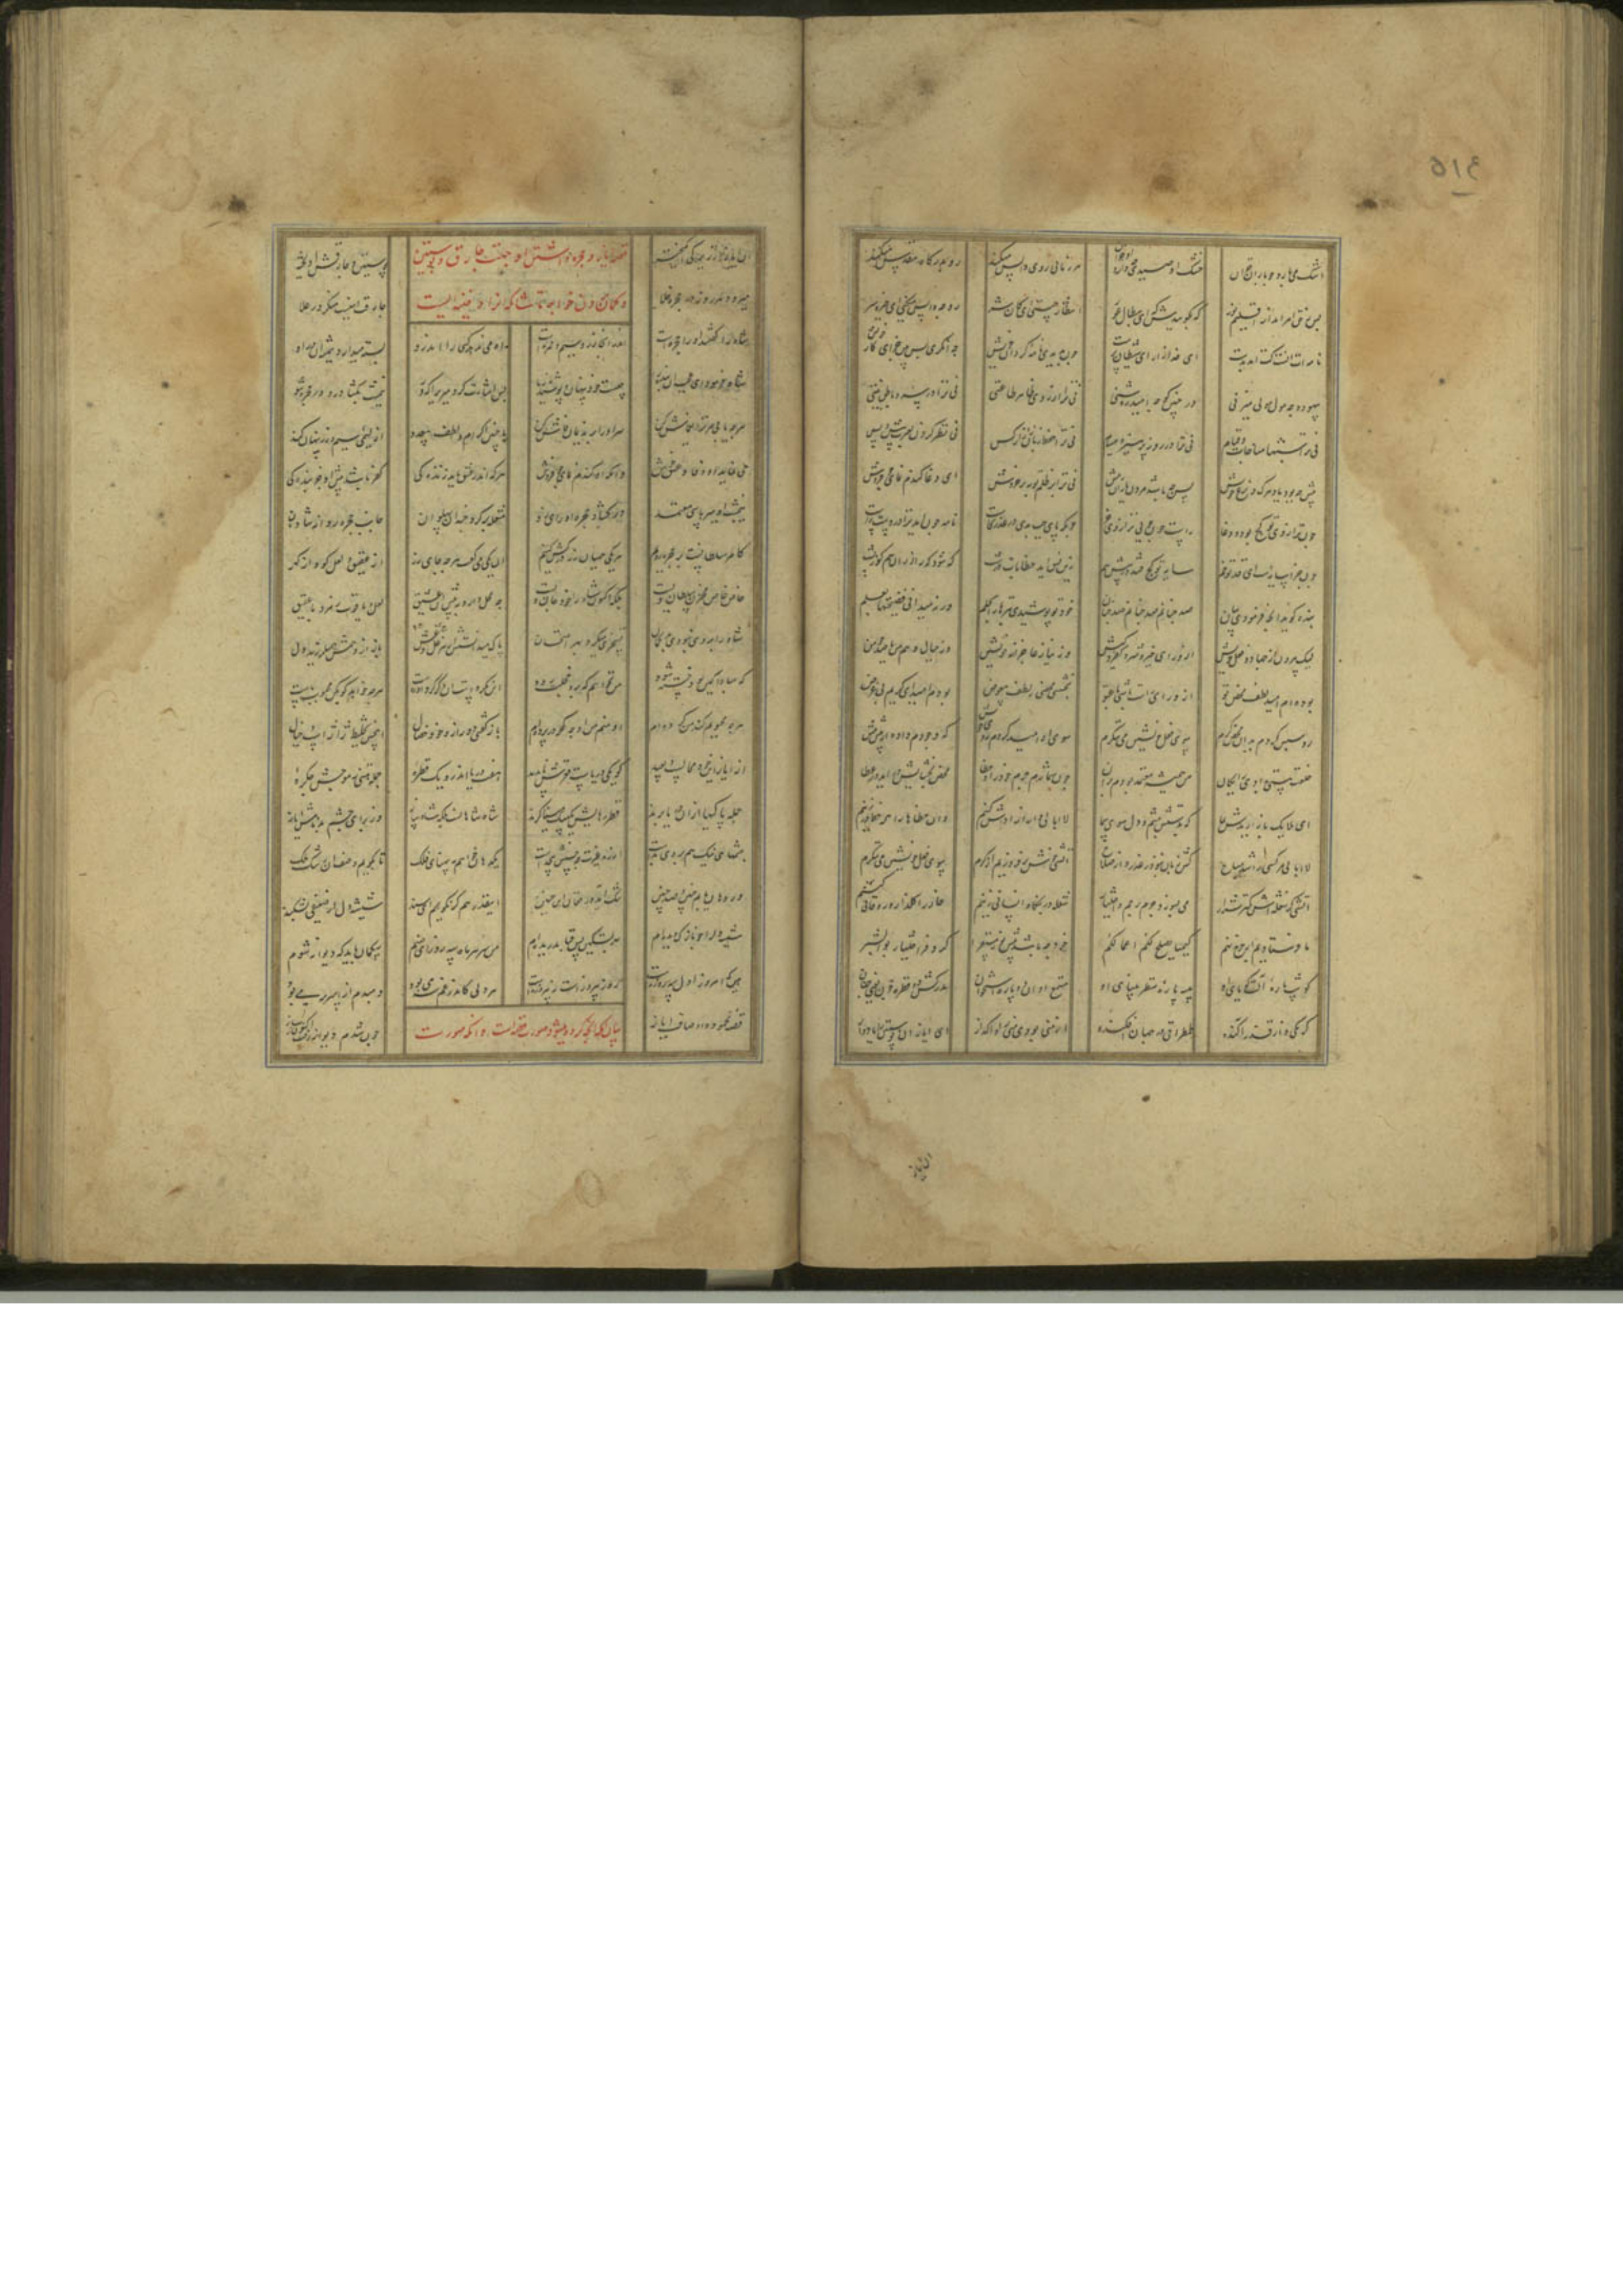 ٥١٤
اشک می بارد چو باران خزان خشک اومیدی چه دارد او جز آن هر زمانی روی واپس میکند رو بدرگاه مقدس میکند
پس ز حق امر آید از اقلیم نور که بگوییدش که ای بطال عور انتظار چیستی ای کان شر رو چه واپس میکنی ای خیره سر
نامه ات آنست کت آمد بدست ای خدا آزار و ای شیطان پرست چون بدیدی نامه کردار خویش چه نگری پس بین جزای کار خویش
بیهوده چه مول مولی میزنی در چنین چه کو امید روشنی نی ترا از روی ظاهر طاعتی نی ترا در سر و باطن نیتی
نی ترا شبها مناجات و قیام نی ترا در روز پرهیز و صیام نی ترا حفظ زبان ز آزار کس نی نظر کردن بعبرت پیش و پس
پیش چه بود یاد مرگ و نزع خویش پس چه باشد مردن یاران پیش نی ترا بر ظلم توبه پر خروش ای دغا گندم نمای جو فروش
چون ترازوی تو کج بود و دغا راست چون جویی ترازوی جزا چونکه پای چپ بدی در غدر و کاست نامه چون آید ترا در دست راست
چون جزا سایه است ای قد تو خم سایه تو کج فتد در پیش هم زین قبل آید خطابات درشت که شود که را از آن هم کوز پشت
بنده گوید آنچه فرمودی بیان صد چنانم صد چنانم صد چنان خود تو پوشیدی بترها را بحلم ورنه میدانی فضیحتها بعلم
لیک بیرون از جهاد و فعل خویش از ورای خیر و شر و کفر و کیش وز نیاز عاجزانه خویشتن وز خیال و وهم من یا صد چو من
بوده ام امید لطف محض تو از ورای راست باشی یا عتو بخشش محضی ز لطف بی عوض بودم امید ای کریم بی غرض
رو سپس کردم بدان محض کرم سوی فعل خویشتن می ننگرم سوی آن امید کردم روی خویش که وجودم داده از پیش پیش
خلعت هستی بدادی رایگان من همیشه معتمد بودم بر آن چون شمارم جرم خود را و خطا محض بخشایش در آید در عطا
کای ملایک باز آریدش بما که بدستش چشم و دل سوی رجا لاابالی وار آزادش کنیم وان خطاها را همه خط بر زنیم
لاابالی مر کسی را شد مباح کش زیان نبود ز غدر و از صلاح آتشی خوش بر فروزیم از کرم سوی فعل خویشتن می ننگرم
آتشی کز شعله اش کمتر شرار می بسوزد جرم و جبر و اختیار شعله در بنگاه انسانی زنیم خار را گلزار روحانی کنیم
ما فرستادیم از چرخ نهم کیمیا یصلح لکم اعمالکم خود چه باشد پیش نور مستقر کر و فر اختیار بوالبشر
گوشت پاره آلت گویای او پیه پاره منظر بینای او مسمع او آن دو پاره استخوان مدرکش دو قطره خون یعنی جنان
کرمکی و از قذر آکنده طمطراقی در جهان افکنده از منی بودی منی را واگذار ای ایاز آن پوستین را یاد آر
آن ایاز
آن ایاز از زیرکی انگیخته پوستین و چارقش آویخته
قصه ایاز و حجره داشتن او جهت چارق و پوستین
میرود هر روز در حجره خلا چارقت اینست منگر در علا
و گمان بردن خواجه تاشان که او را دفینه ایست
شاه را گفتند او را حجره ایست اندر آنجا زر و سیم و خمره ایست راه می ندهد کسی را اندرو بسته میدارد همیشه آن در او
شاه فرمود ای عجب آن بنده را چیست خود پنهان و پوشیده ز ما پس اشارت کرد میری را که رو نیم شب بگشا در و در حجره شو
هر چه یابی مر ترا یغماش کن سر او را بر ندیمان فاش کن با چنین اکرام و لطف بیعدد از لئیمی سیم و زر پنهان کند
می نماید او وفا و عشق و جوش وانگه او گندم نمای جو فروش هر که اندر عشق یابد زندگی کفر باشد پیش او جز بندگی
نیم شب آن میر با سی معتمد در گشاد حجره او رای زد مشعله بر کرده چندین پهلوان جانب حجره روانه شادمان
کامر سلطانست بر حجره زنیم هر یکی همیان زر در کش کنیم آن یکی می گفت هی چه جای زر از عقیق و لعل گو و از گهر
خاص خاص مخزن سلطان ویست بلکه اکنون شاه را خود جان ویست چه محل دارد بپیش این عشیق لعل و یاقوت و زمرد یا عقیق
شاه را بر وی نبودی بد گمان تسخری میکرد بهر امتحان پاک میدانستش از هر غل و غش باز از وهمش همی لرزید دل
که مبادا کین بود خسته شود من نخواهم که برو خجلت رود این نکردست او و گر کرد او رواست هر چه خواهد گو بکن محبوب ماست
هر چه محبوبم کند من کرده ام او منم من او چه گر در پرده ام باز گفتی دور از آن خو و خصال این چنین تخلیط ژاژ است و خیال
از ایاز این خود محالست و بعید کو یکی دریاست قعرش ناپدید هفت دریا اندرو یک قطره جمله هستی ز موجش چکره
جمله پاکیها از آن دریا برند قطره هایش یک بیک میناگرند شاه شاهانست بلکه شاه ساز وز برای چشم بد نامش ایاز
چشمهای نیک هم بر وی بدست از ره غیرت که حسنش بیحدست یک دهان خواهم بپهنای فلک تا بگویم وصف آن رشک ملک
ور دهان یابم چنین و صد چنین تنگ آید در فغان این حنین اینقدر هم گر نگویم ای سند شیشه دل از ضعیفی بشکند
شیشه دل را چو نازک دیده ام بهر تسکین بس قبا بدریده ام من سر هر ماه سه روز ای صنم بیگمان باید که دیوانه شوم
هین که امروز اول سه روزه است روز پیروز است نه پیروزه است هر دلی کاندر غم شه می بود دمبدم او را سر مه می بود
قصه محمود و اوصاف ایاز چون شدم دیوانه رفت اکنون ز ساز
بیان آنکه آنچه کرده میشود صورت قصه است و آنکه صورت